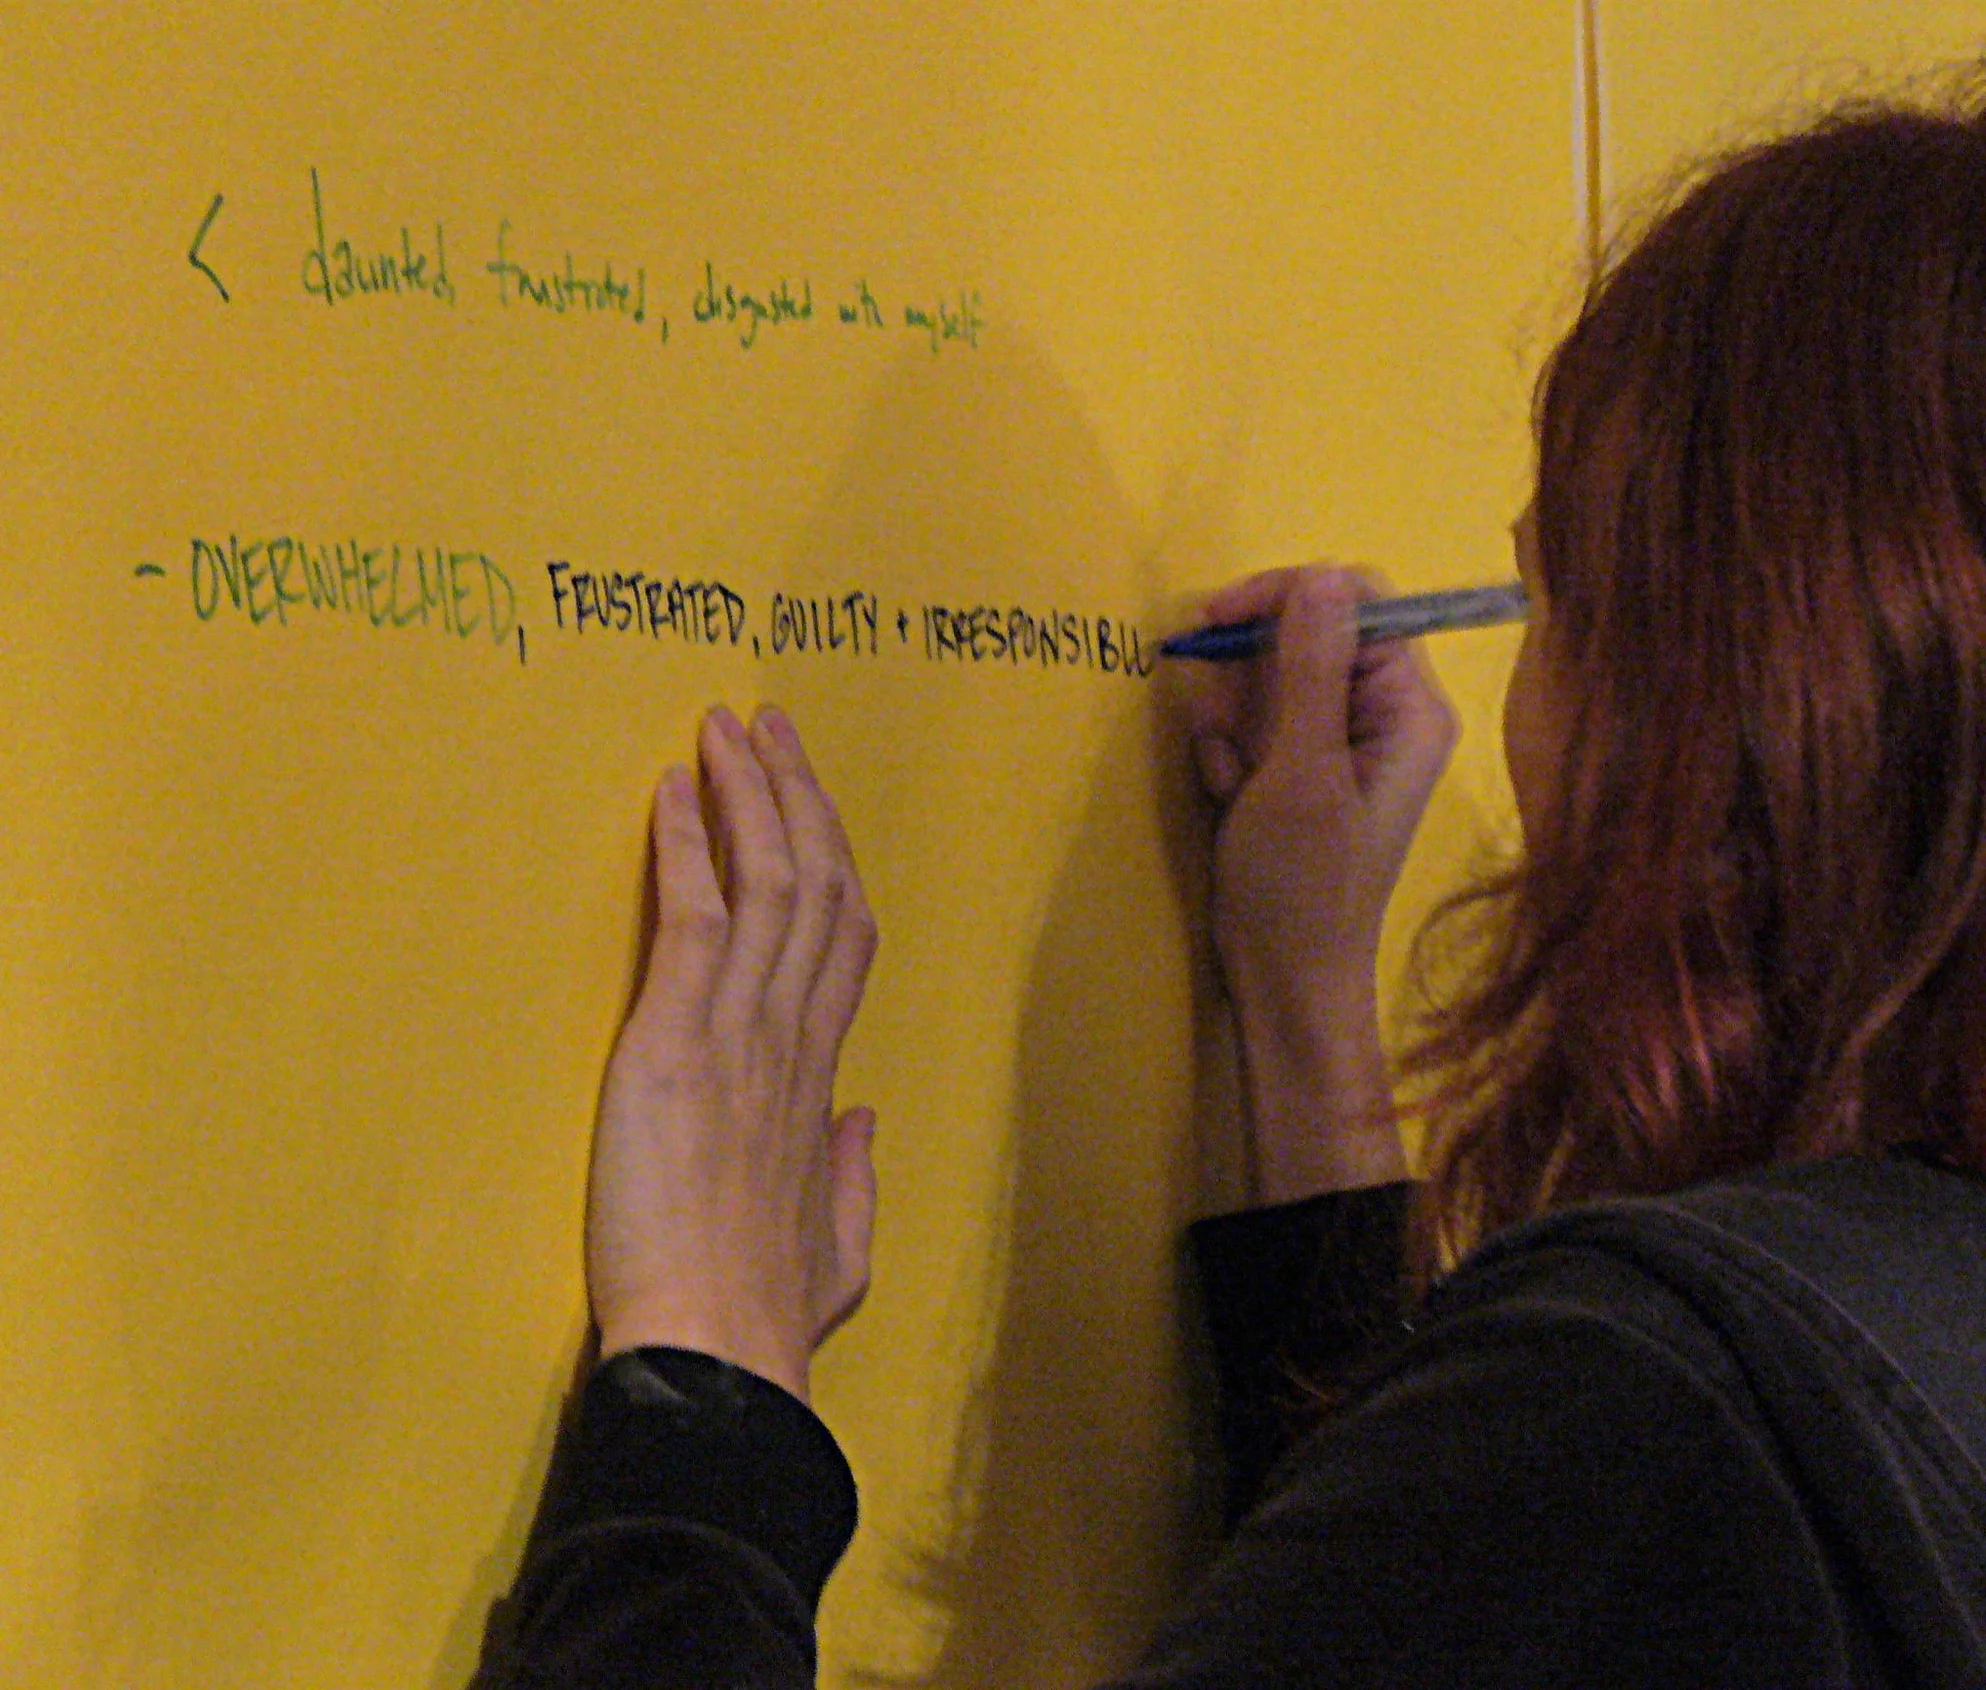 < daunted, frustrated, disgusted with myself
- OVERWHELMED, FRUSTRATED, GUILTY + IRRESPONSIBLL